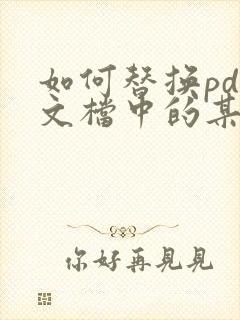 如何替换pd
文檔中的某
你好再見見